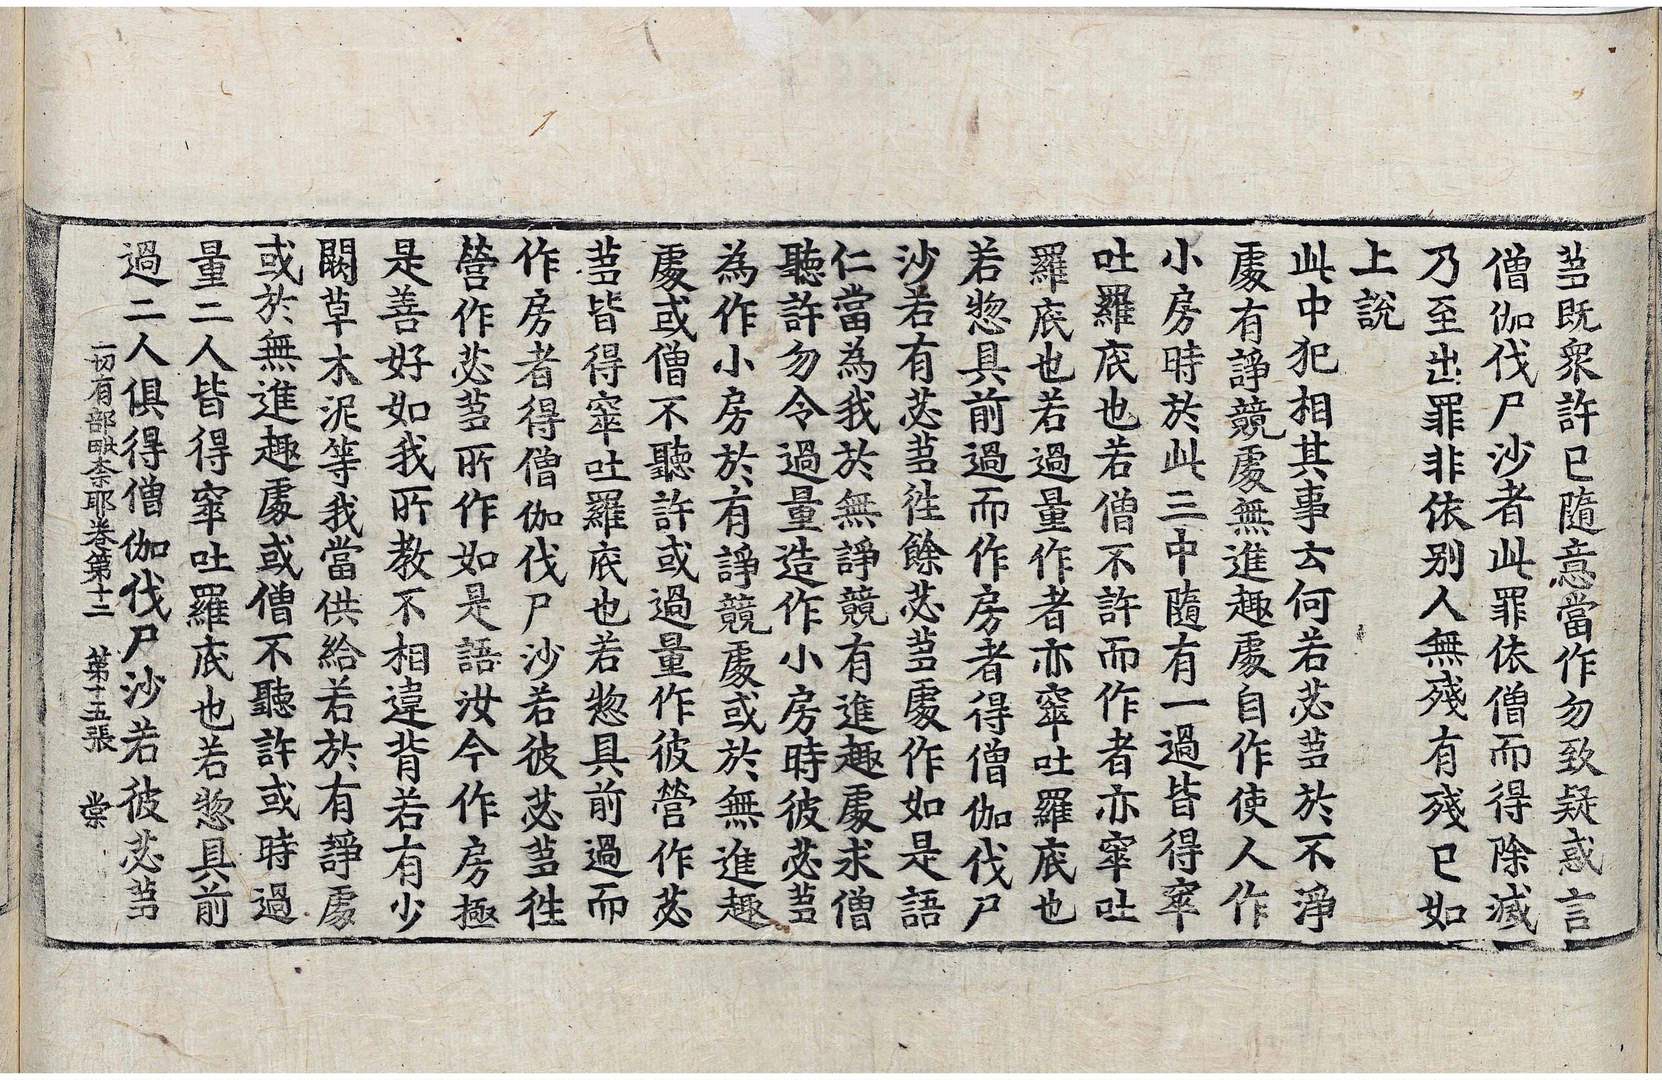 苾既衆許已隨意當作勿致疑惑言
僧伽伐尸沙者此罪依僧而得除滅
乃至出罪非依别人無殘有殘已如
上說
此中犯相其事去何若苾蒭於不淨
處有諍競處無進趣處自作使人作
小房時於此三中隨有一過皆得窣
吐羅底也若僧不許而作者亦窣吐
羅底也若過量作者亦窣吐羅底也
若惣具前過而作房者得僧伽伐尸
沙若有苾蒭徃餘苾蒭處作如是語
仁當為我於無諍競有進趣處求僧
聽許勿令過量造作小房時彼苾蒭
為作小房於有諍競處或於無進趣
處或僧不聽許或過量作彼營作苾
蒭皆得窣吐羅底也若惣具前過而
作房者得僧伽伐尸沙若彼苾蒭徃
營作苾蒭所作如是語汝今作房極
是善好如我所教不相違背若有少
闕草木泥等我當供給若於有諍處
或於無進趣處或僧不聽許或時過
量二人皆得窣吐羅底也若惣具前
過二人俱得僧伽伐尸沙若彼苾蒭
一切有部毗奈耶卷第十二 第十五張 棠